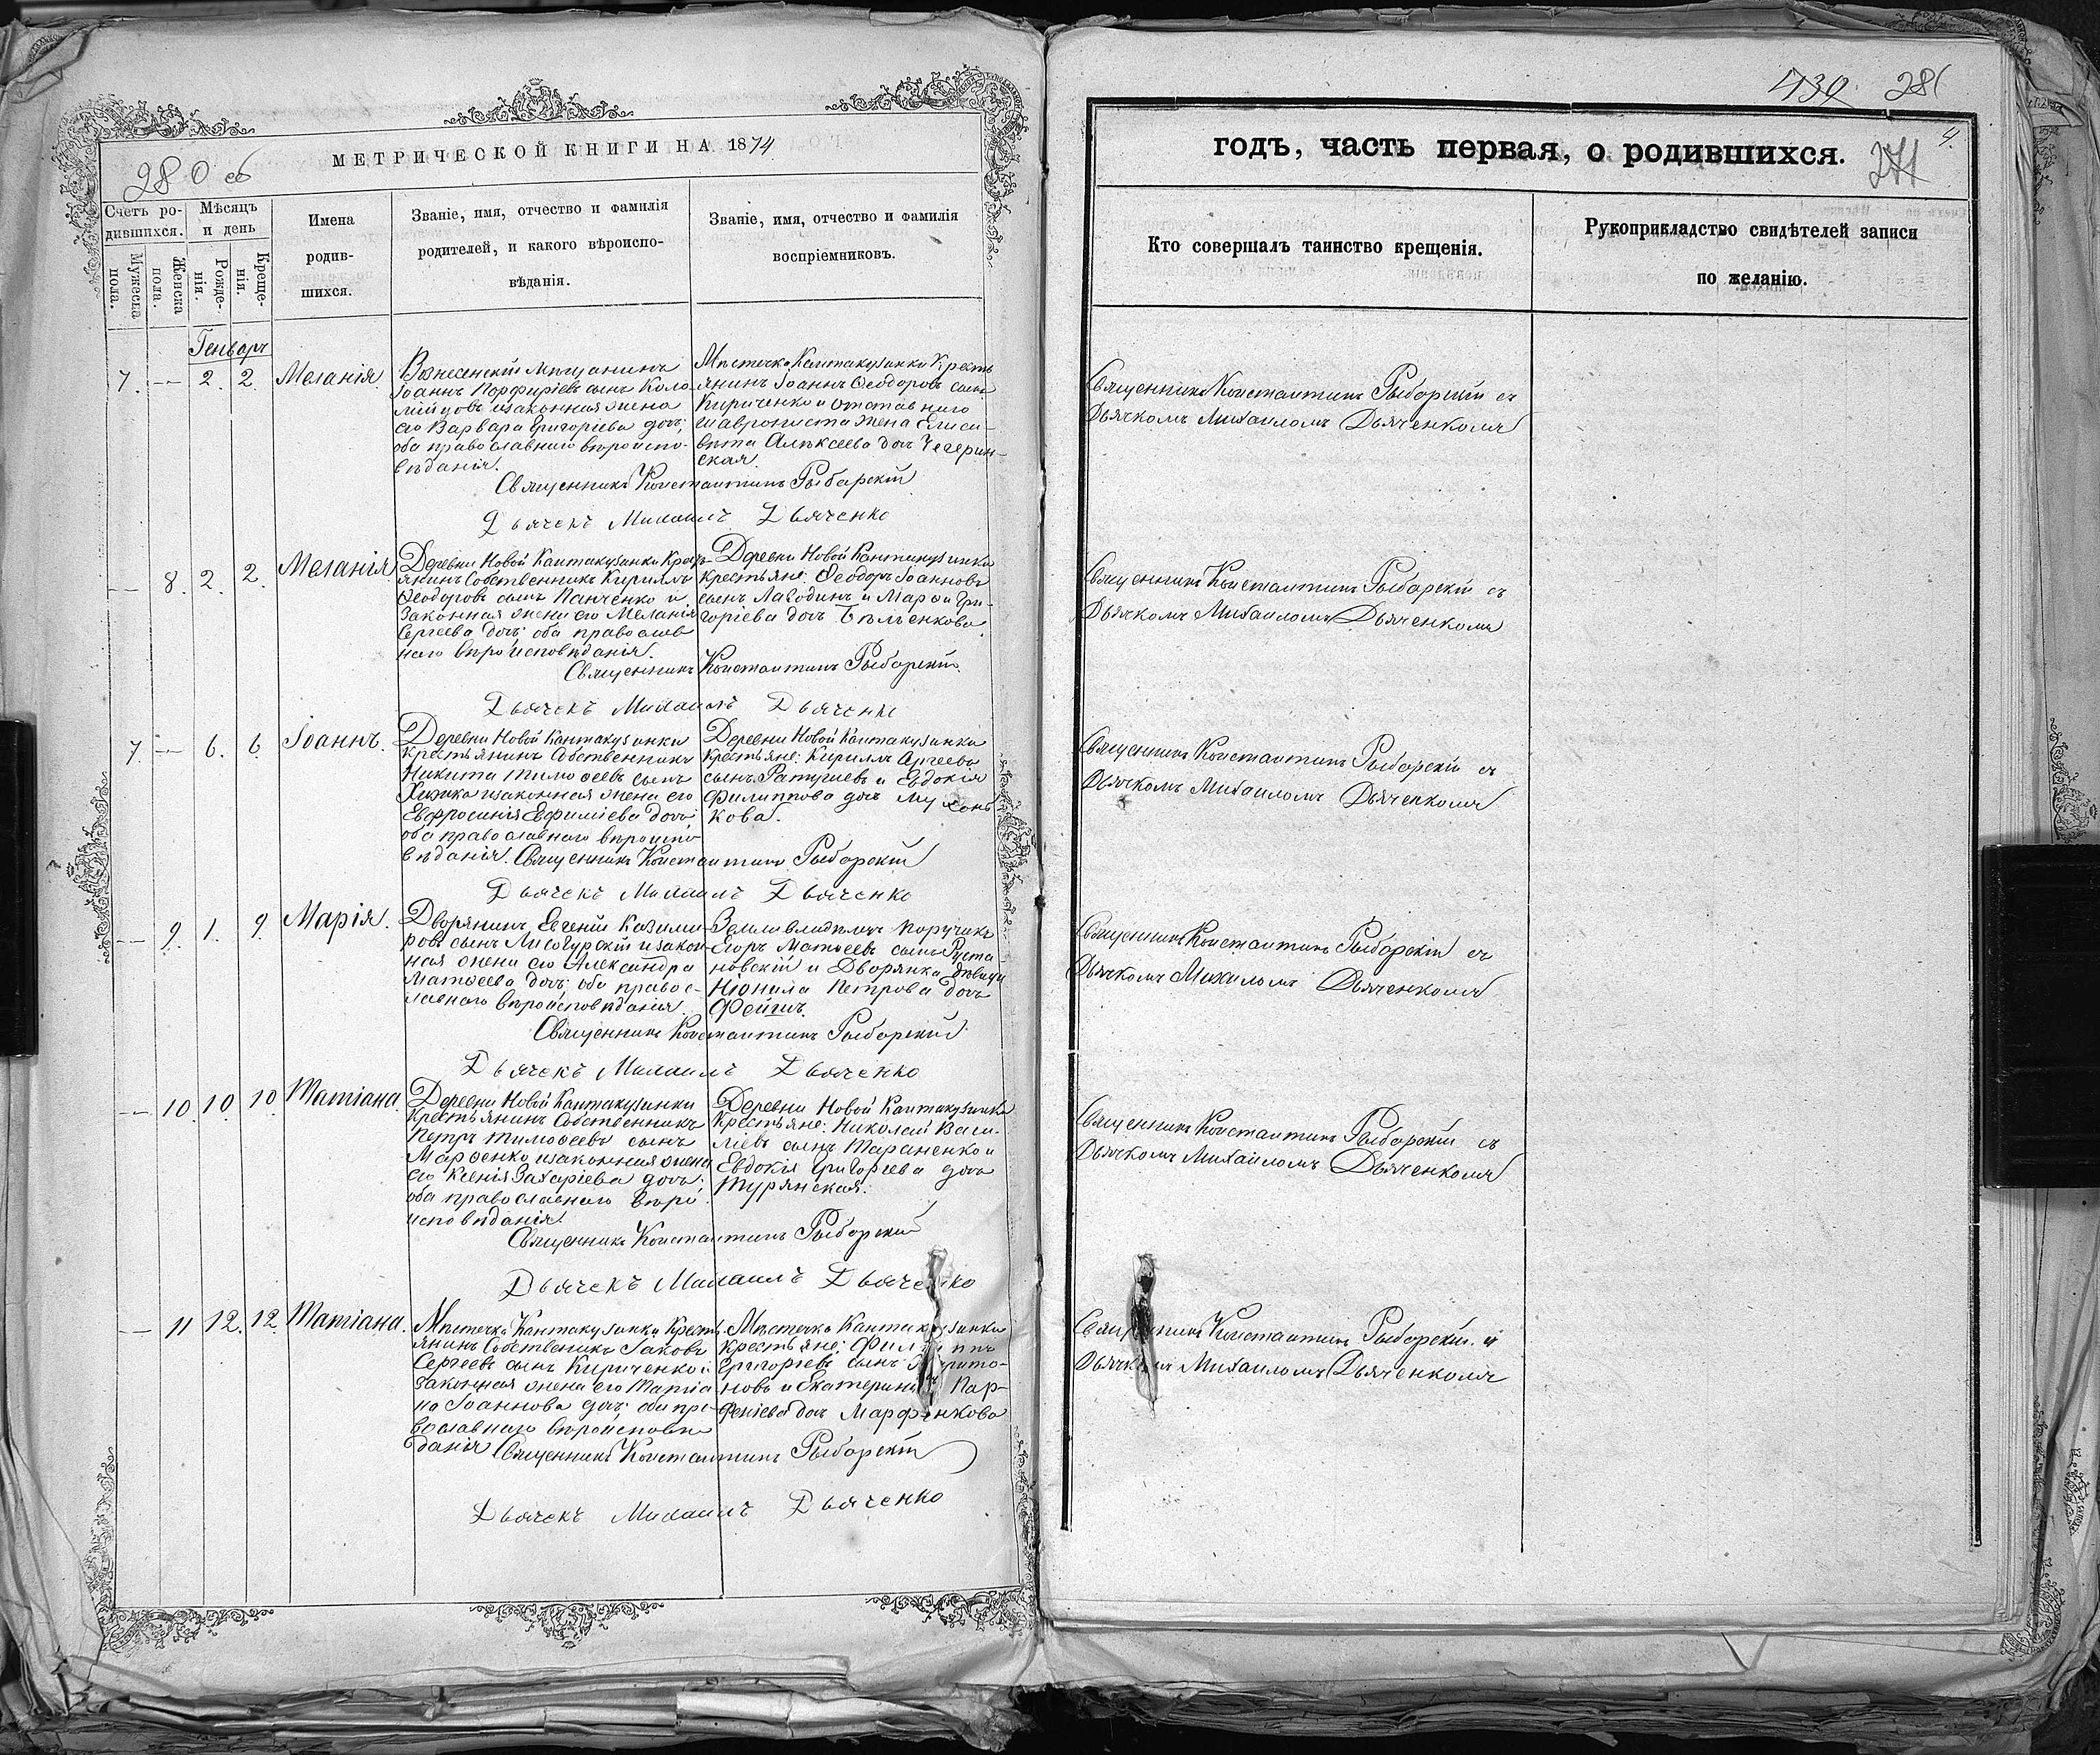 МЕТРИЧЕСКОЙ КНИГИ НА 1874
280 об
Счетъ ро-
дившихся.
Мужеска
пола.
Женска
пола.
Мѣсяцъ
и день
Рожде-
нія.
Креще-
нія.
Имена
родив-
шихся.
Званіе, имя, отчество и фамилія
родителей, и какого вѣроиспо-
вѣданія.
Званіе, имя, отчество и фамилія
воспріемниковъ.
Генварь
7. — 2. 2. Меланія.
Вознесенскій мѣщанинъ
Іоаннъ Порфиріевъ сынъ Коло-
мійцовъ и законная жена
его Варвара Григоріева дочь;
оба православнаго вѣроиспо-
вѣданія.
Мѣстечка Кантакузинки Кресть
янинъ Іоаннъ Ѳеодоровъ сынъ
Кириченко и отставнаго
жена Елиса-
вета Алексеева дочь Чегерин-
ская.
Священникъ Константинъ Рыбарскій
Дьячекъ Михаилъ Дьяченко
— 8. 2. 2. Меланія
Деревни Новой Кантакузинки Крест
янинъ Собственникъ Кириллъ
Ѳеодоровъ сынъ Панченко и
Законная жена его Меланія
Сергеева дочь; оба православ
наго вѣроисповѣданія.
Деревни Новой Кантакузинки
Крестьяне: Ѳеодоръ Іоанновъ
сынъ Лагодинъ и Марѳа Гри-
горіева дочь Бѣленкова.
Священникъ Константинъ Рыбарскій.
Дьячекъ Михаилъ Дьяченко
7. — 6. 6. Іоаннъ.
Деревни Новой Кантакузинки
Крестьянинъ Собственникъ
Никита Тимоѳеевъ сынъ
Хижка и законная жена его
Евфросинія Евфиміева дочь
оба православнаго вѣроиспо
вѣданія.
Деревни Новой Кантакузинки
Крестьяне: Кириллъ Сергеевъ
сынъ и Евдокія
Филиппова дочь
кова.
Священникъ Константинъ Рыбарскій
Дьячекъ Михаилъ Дьяченко
— 9. 1. 9. Марія.
Дворянинъ Евгеній Казими-
ровъ сынъ Лисогурскій и закон-
ная жена его Александра
Матѳеева дочь; оба правос-
лавнаго вѣроисповѣданія.
Землевладѣлецъ Поручикъ
Егоръ Матѳеевъ сынъ Руста-
новскій и Дворянка дѣвица
Неонила Петрова дочь
Фейшъ.
Священникъ Константинъ Рыбарскій
Дьячекъ Михаилъ Дьяченко
— 10. 10. 10. Татіана.
Деревни Новой Кантакузинки
Крестьянинъ Собственникъ
Петръ Тимоѳеевъ сынъ
Марѳенко и законная жена
его Ксенія Захаріева дочь;
оба православнаго вѣро
исповѣданія.
Деревни Новой Кантакузинки
Крестьяне: Николай Васи-
ліевъ сынъ Тараненко и
Евдокія Григоріева дочь
Турянская.
Священникъ Константинъ Рыбарскій
Дьячекъ Михаилъ Дьяченко
— 11 12. 12. Татіана.
Мѣстечка Кантакузинки Кресть
янинъ Собственникъ Іаковъ
Сергеевъ сынъ Кириченко и
Законная жена его Татіа
на Іоаннова дочь; оба пра-
вославнаго вѣроисповѣ
данія
Мѣстечка Кантакузинки
Крестьяне: Филиппъ
Григоріевъ сынъ
новъ и Екатерина Пар-
феніева дочь Марфенкова
Священникъ Константинъ Рыбарскій
Дьячекъ Михаилъ Дьяченко
439 281
годъ, часть первая, о родившихся.
4.
271
Кто совершалъ таинство крещенія.
Рукоприкладство свидѣтелей записи
по желанію.
Священникъ Константинъ Рыбарскій съ
Дьячкомъ Михаиломъ Дьяченкомъ
Священникъ Константинъ Рыбарскій съ
Дьячкомъ Михаиломъ Дьяченкомъ
Священникъ Константинъ Рыбарскій съ
Дьячкомъ Михаиломъ Дьяченкомъ
Священникъ Константинъ Рыбарскій съ
Дьячкомъ Михаиломъ Дьяченкомъ
Священникъ Константинъ Рыбарскій съ
Дьячкомъ Михаиломъ Дьяченкомъ
Священникъ Константинъ Рыбарскій съ
Дьячкомъ Михаиломъ Дьяченкомъ